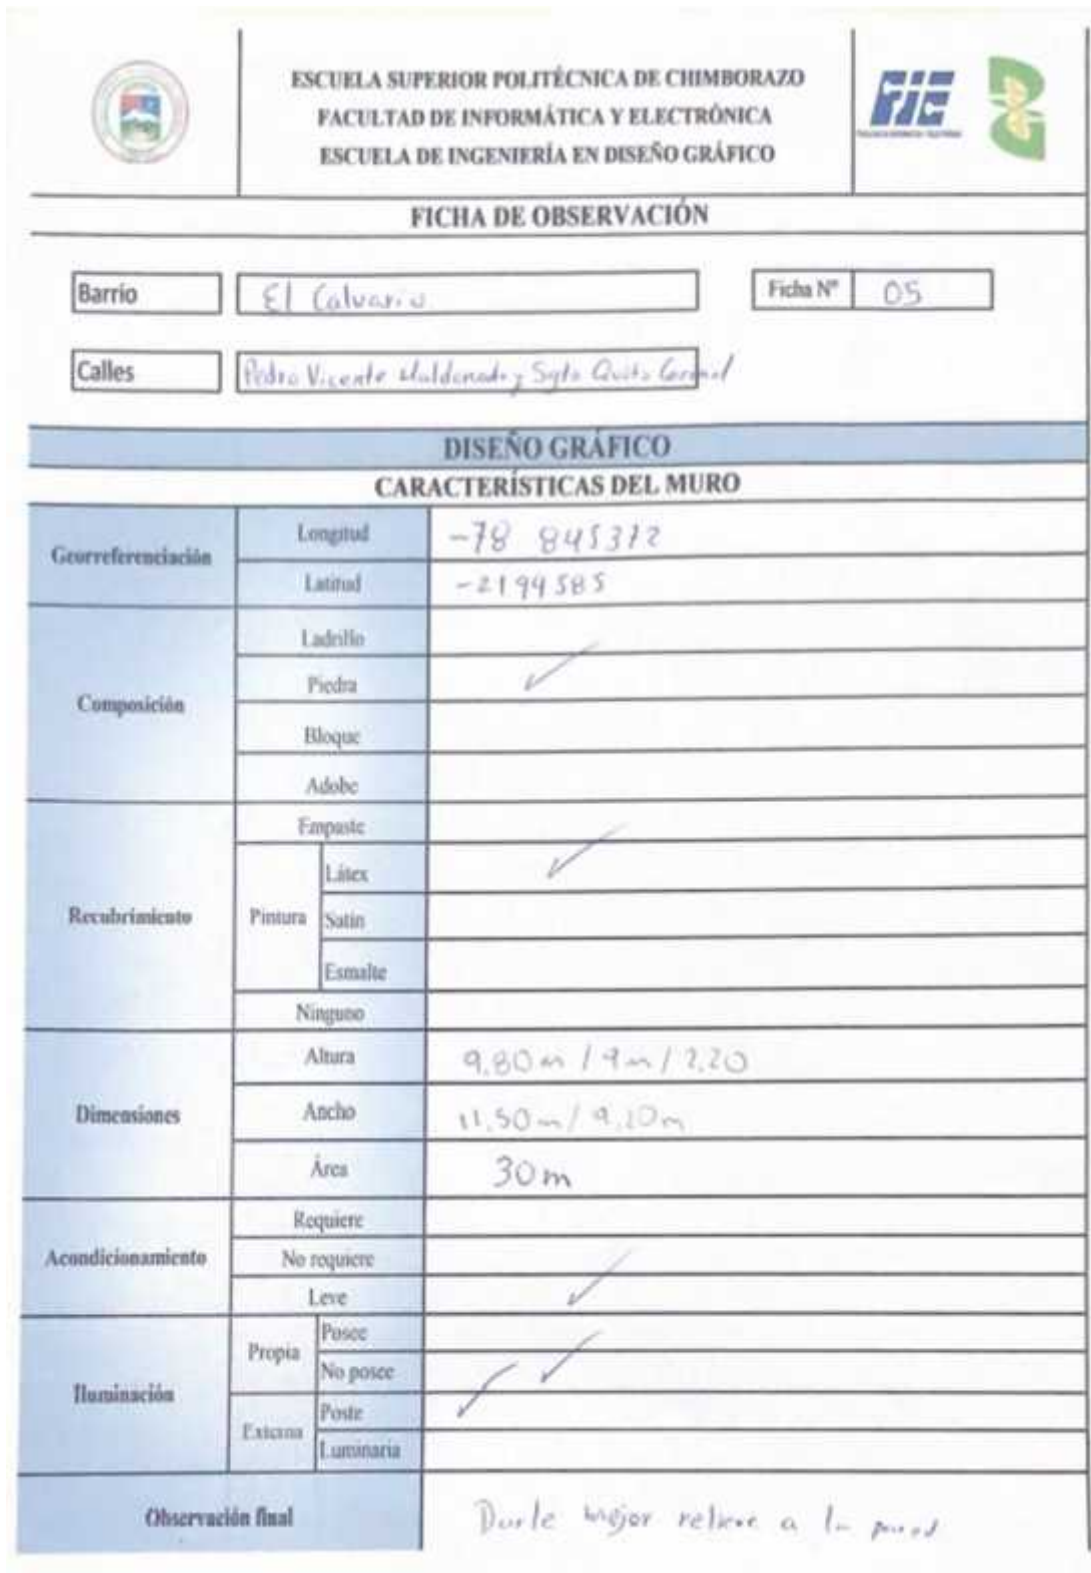 ESCUELA SUPERIOR POLITÉCNICA DE CHIMBORAZO
FACULTAD DE INFORMÁTICA Y ELECTRÓNICA
ESCUELA DE INGENIERÍA EN DISEÑO GRÁFICO
FIE
FICHA DE OBSERVACIÓN
Barrio El Calvario Ficha N° 05
Calles Pedro Vicente Maldonado y Sgto Quito Coronel
DISEÑO GRÁFICO
CARACTERÍSTICAS DEL MURO
Georreferenciación
Longitud -78 845372
Latitud -2194585
Composición
Ladrillo
Piedra ✓
Bloque
Adobe
Recubrimiento
Empaste
Pintura
Látex ✓
Satin
Esmalte
Ninguno
Dimensiones
Altura 9,80m / 9m / 2,20
Ancho 11,50m / 9,20m
Área 30m
Acondicionamiento
Requiere
No requiere
Leve ✓
Iluminación
Propia
Posee
No posee ✓
Externa
Poste ✓
Luminaria
Observación final Darle mejor relieve a la pared